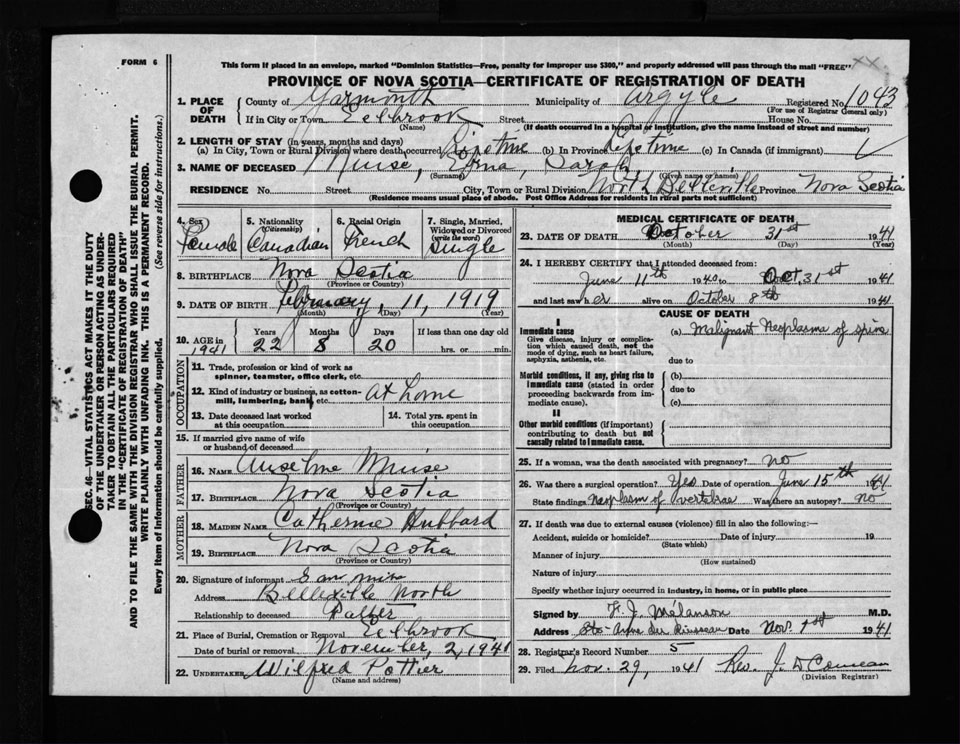 FORM 6
This form if placed in an envelope, marked "Dominion Statistics—Free, penalty for improper use $300," and properly addressed will pass through the mail "FREE" XX
PROVINCE OF NOVA SCOTIA—CERTIFICATE OF REGISTRATION OF DEATH
SEC. 46—VITAL STATISTICS ACT MAKES IT THE DUTY
OF THE UNDERTAKER OR PERSON ACTING AS UNDER-
TAKER TO OBTAIN ALL THE PARTICULARS REQUIRED
IN THE "CERTIFICATE OF REGISTRATION OF DEATH"
AND TO FILE THE SAME WITH THE DIVISION REGISTRAR WHO SHALL ISSUE THE BURIAL PERMIT.
WRITE PLAINLY WITH UNFADING INK. THIS IS A PERMANENT RECORD.
Every item of Information should be carefully supplied. (See reverse side for instructions.)
1. PLACE OF DEATH County of Yarmouth Municipality of Argyle Registered No. 1043
(For use of Registrar General only)
If in City or Town Eelbrook Street House No.
(Name) (If death occurred in a hospital or institution, give the name instead of street and number)
2. LENGTH OF STAY (in years, months and days)
(a) In City, Town or Rural Division where death occurred Lifetime (b) In Province Lifetime (c) In Canada (if immigrant)
3. NAME OF DECEASED Muise, Edna, Sarah
(Surname) (Given name or names)
RESIDENCE No. Street City, Town or Rural Division North Belleville Province Nova Scotia
(Residence means usual place of abode. Post Office Address for residents in rural parts not sufficient)
4. Sex Female
5. Nationality (Citizenship) Canadian
6. Racial Origin French
7. Single, Married, Widowed or Divorced (write the word) Single
8. BIRTHPLACE Nova Scotia
(Province or Country)
9. DATE OF BIRTH February, 11, 1919
(Month) (Day) (Year)
10. AGE in 1941 Years 22 Months 8 Days 20 If less than one day old hrs. or min.
OCCUPATION
11. Trade, profession or kind of work as
spinner, teamster, office clerk, etc.
12. Kind of industry or business, as cotton-
mill, lumbering, bank, etc. At home
13. Date deceased last worked
at this occupation
14. Total yrs. spent in
this occupation
15. If married give name of wife
or husband of deceased
FATHER
16. NAME Anselme Muise
17. BIRTHPLACE Nova Scotia
(Province or Country)
MOTHER
18. MAIDEN NAME Catherine Hubbard
19. BIRTHPLACE Nova Scotia
(Province or Country)
20. Signature of informant
Address Belleville North
Relationship to deceased Father
21. Place of Burial, Cremation or Removal Eelbrook
Date of burial or removal November, 2, 1941
22. UNDERTAKER Wilfred Pottier
(Name and address)
MEDICAL CERTIFICATE OF DEATH
23. DATE OF DEATH October 31st 1941
(Month) (Day) (Year)
24. I HEREBY CERTIFY that I attended deceased from:
June 11th 1940 to Oct. 31st 1941
and last saw her alive on October 8th 1941
CAUSE OF DEATH
I
Immediate cause (a) Malignant Neoplasma of spine
Give disease, injury or complica-
tion which caused death, not the
mode of dying, such as heart failure,
asphyxia, asthenia, etc.
due to
Morbid conditions, if any, giving rise to
immediate cause (stated in order
proceeding backwards from im-
mediate cause).
(b)
due to
(c)
II
Other morbid conditions (if important)
contributing to death but not
causally related to immediate cause.
25. If a woman, was the death associated with pregnancy? no
26. Was there a surgical operation? Yes Date of operation June 15th 1941
State findings Neoplasm of vertebras Was there an autopsy? No
27. If death was due to external causes (violence) fill in also the following:—
Accident, suicide or homicide? Date of injury 19
(State which)
Manner of injury
(How sustained)
Nature of injury
Specify whether injury occurred in industry, in home, or in public place
Signed by F. J. Melanson M.D.
Address Ste-Anne du Ruisseau Date Nov. 1st 1941
28. Registrar's Record Number 5
29. Filed Nov. 29, 1941 Rev. J. D Comeau
(Division Registrar)